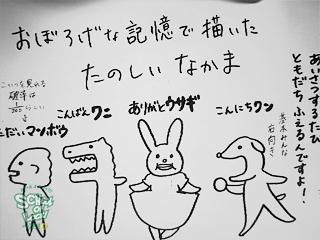 おぼろげな記憶で描いた
たのしい なかま
あいさつするたび
ともだち ふえるんですよ！
こいつを見れる
確率は
ただいマンボウ
こんばんワニ
ありがとウサギ
こんにちワン
基本みんな
右向き